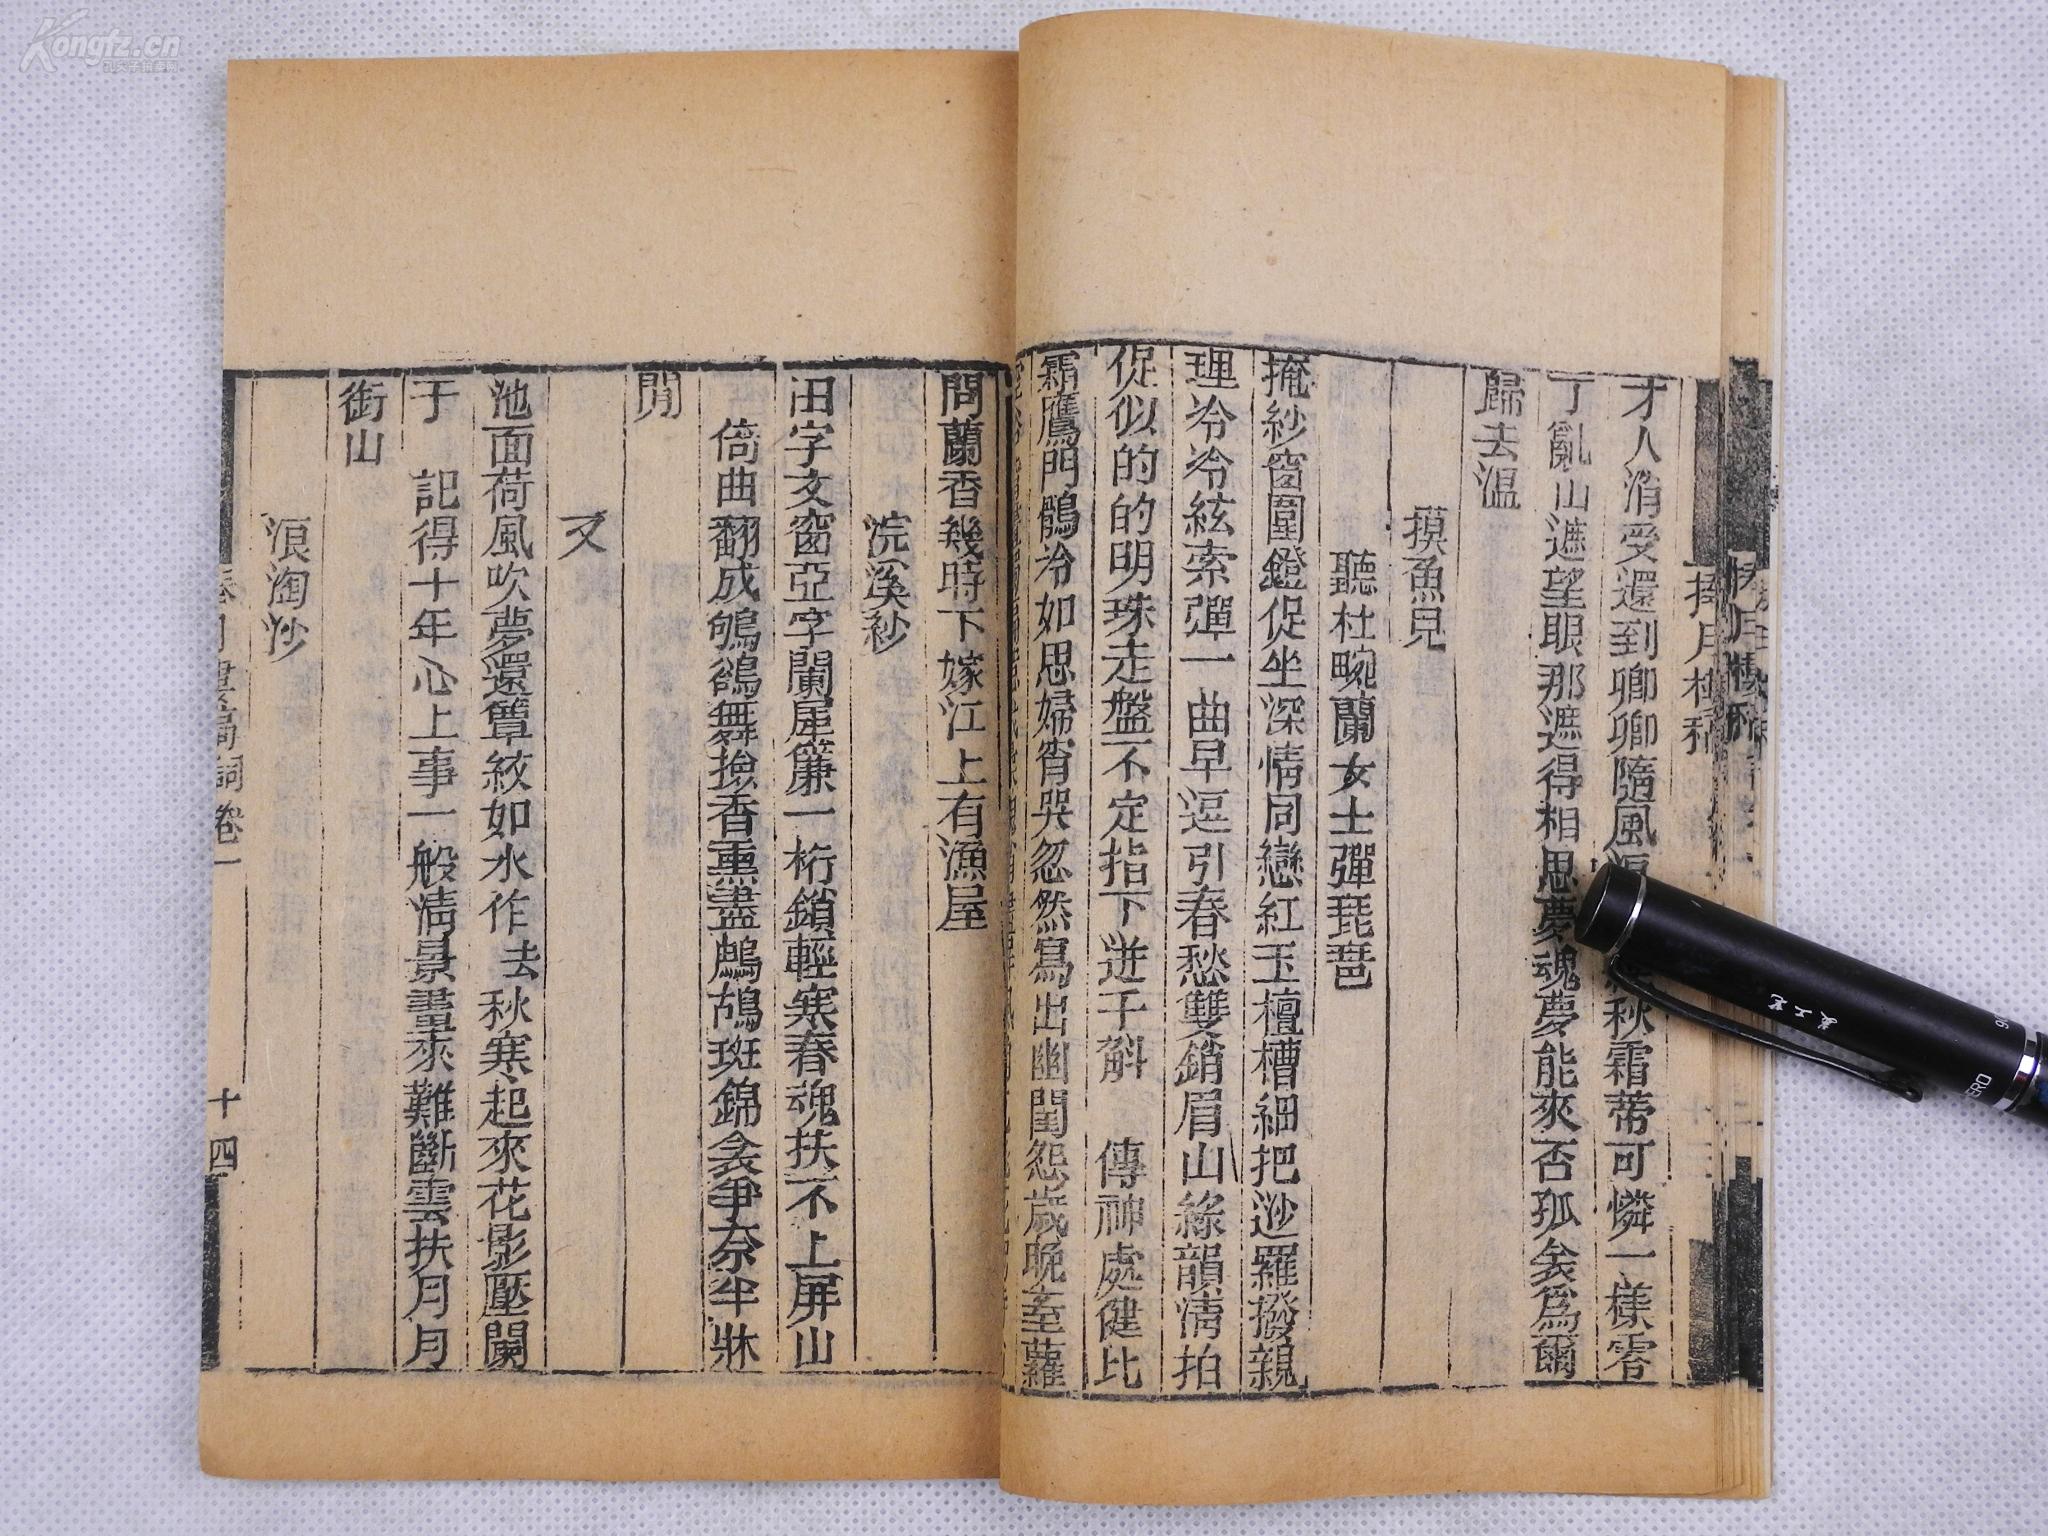 才人消受還到卿卿隨風
秋霜蒂可憐一樣零
丁亂山遮望眼那遮得相思夢魂夢能來否孤衾爲爾
歸去溫
摸魚兒
聽杜畹蘭女士彈琵琶
掩紗窗圍鐙促坐深情同戀紅玉檀槽細把逤羅撥親
理冷冷絃索彈一曲早逗引春愁雙銷眉山綠韻淸拍
促似的的明珠走盤不定指下迸千斛 傳神處健比
霜鷹門鶻冷如思婦宵哭忽然寫出幽閨怨歲晚
蘿
問蘭香幾時下嫁江上有漁屋
浣溪紗
田字文窗亞字闌犀簾一桁鎖輕寒春魂扶不上屏山
倚曲翻成鴝鵒舞撿香熏盡鷓鴣斑錦衾爭奈半牀
閒
又
池面荷風吹夢還簟紋如水作去秋寒起來花影壓闌
干 記得十年心上事一般淸景畫來難斷雲扶月月
銜山
浪淘沙
詞卷一
十四
Kongfz.cn